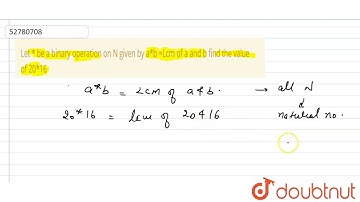 52780708
Let * be a binary operation on N given by a*b =Lcm of a and b find the value
of 20*16
a*b = Lcm of a & b. → all N
&
20*16 = lcm of 20 & 16 natural no.
doubtnut